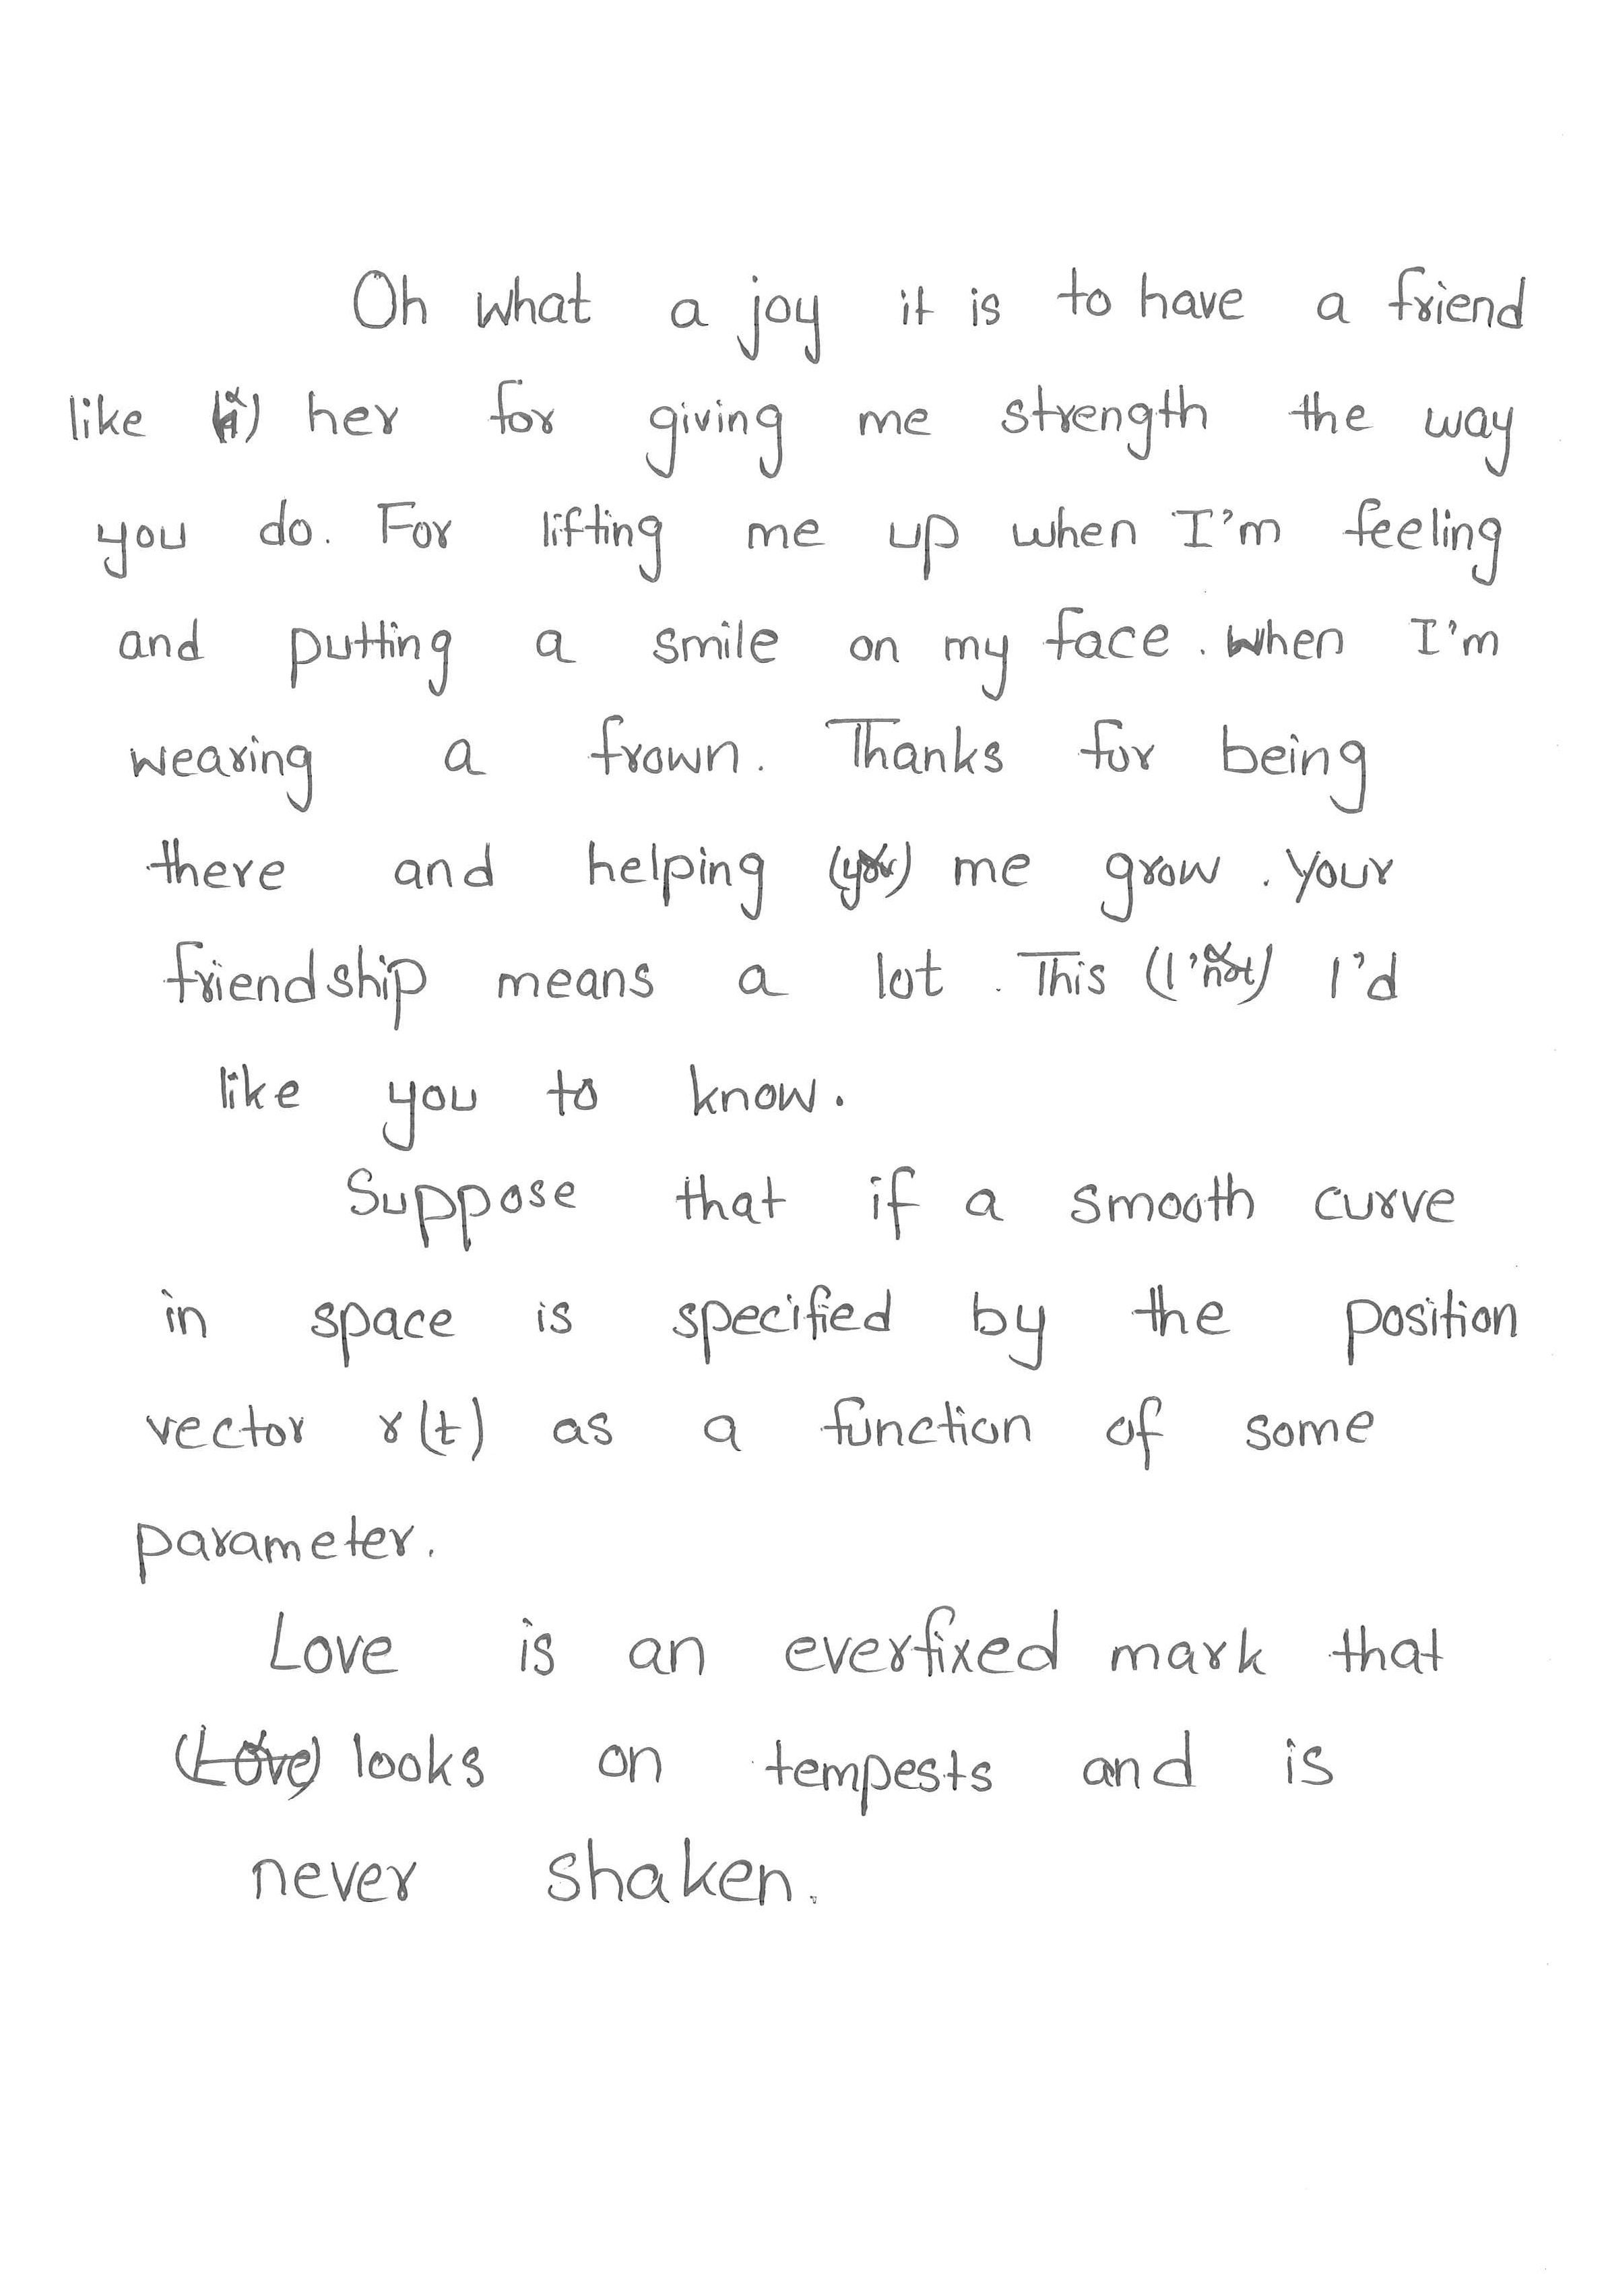 Oh what a joy it is to have a friend
like her for giving me strength the way
you do. For lifting me up when I'm feeling
and putting a smile on my face. when I'm
wearing a frown. Thanks for being
there and helping me grow. Your
friendship means a lot. This I'd
like you to know.
Suppose that if a smooth curve
in space is specified by the position
vector r(t) as a function of some
parameter.
Love is an everfixed mark that
(Love) looks on tempests and is
never shaken.